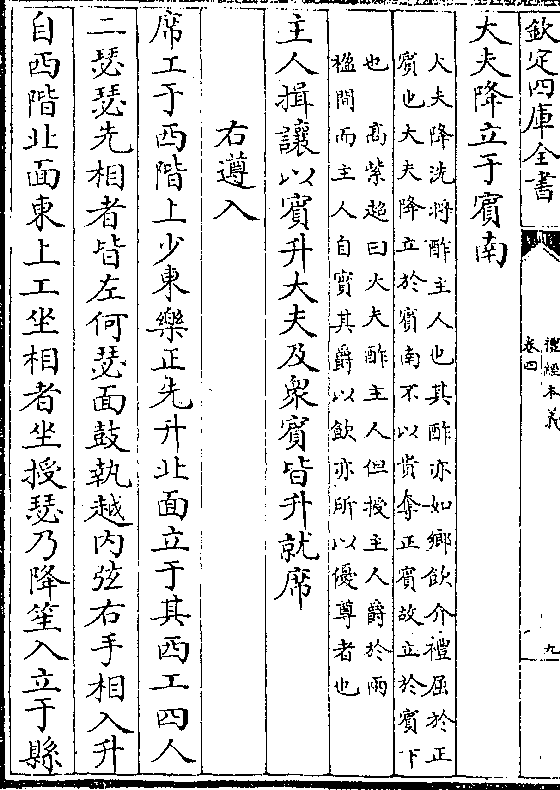 欽定四庫全書
禮經本義
卷四
九
大夫降立于賓南
大夫降洗將酢主人也其酢亦如鄉飲介禮屈於正
賓也大夫降立於賓南不以貴奪正賓故立於賓下
也 高紫超曰大夫酢主人但授主人爵於兩
楹間而主人自實其爵以飲亦所以優尊者也
主人揖讓以賓升大夫及衆賓皆升就席
右遵入
席工于西階上少東樂正先升北面立于其西工四人
二瑟瑟先相者皆左何瑟面鼓執越内弦右手相入升
自西階北面東上工坐相者坐授瑟乃降笙入立于縣